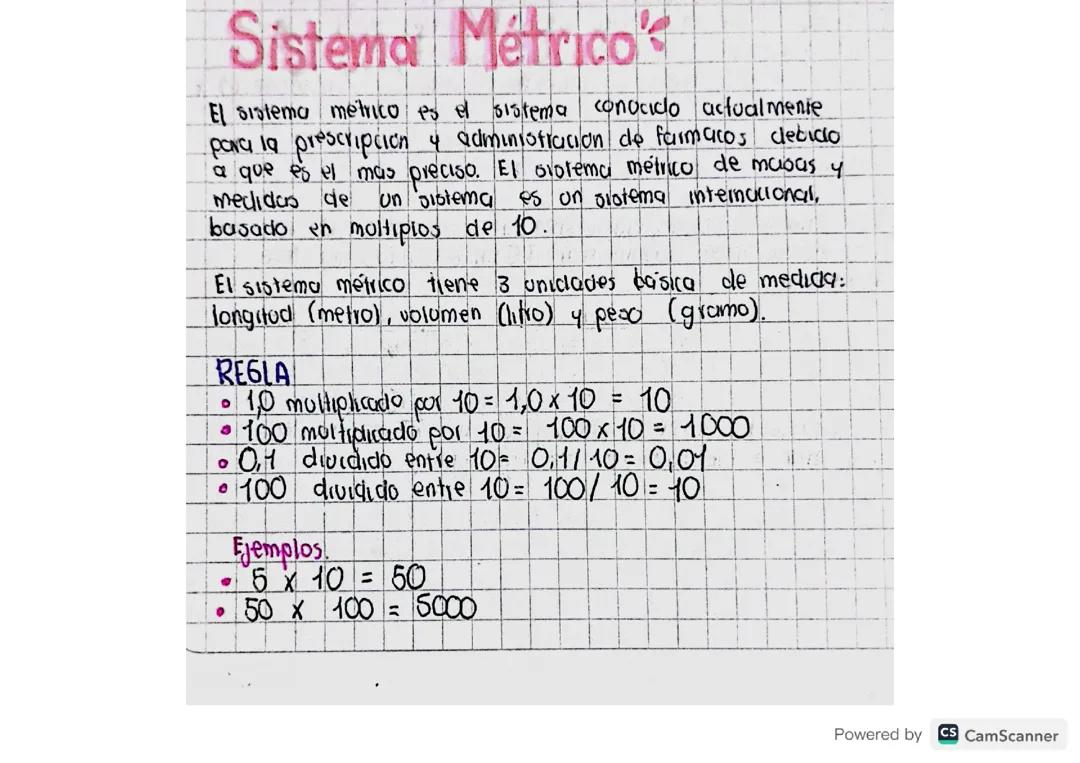 Sistema Métrico
El sistema métrico es el sistema conocido actualmente
para la prescripción y administración de farmacos debido
a que es el mas preciso. El sistema métrico de masas y
medidas de un sistema es un sistema internacional,
basado en multiplos de 10.
El sistema métrico tiene 3 unidades básica de medida:
longitud (metro), volumen (litro) y peso (gramo).
REGLA
• 1,0 multiplicado por 10 = 1,0 x 10 = 10
• 100 multiplicado por 10 = 100 x 10 = 1000
• 0,1 dividido entre 10 = 0,1 / 10 = 0,01
• 100 dividido entre 10 = 100 / 10 = 10
Ejemplos.
• 5 x 10 = 50
• 50 x 100 = 5000
Powered by CS CamScanner